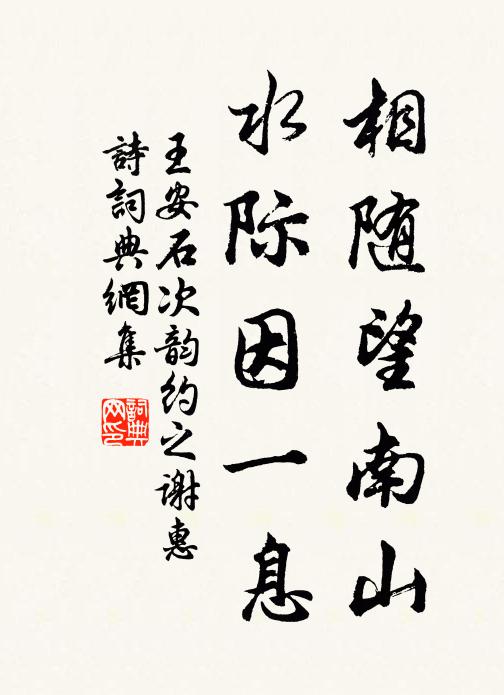 相随望南山
水际因一息
王安石次韵约之谢惠
詩詞典網集
詞典網印